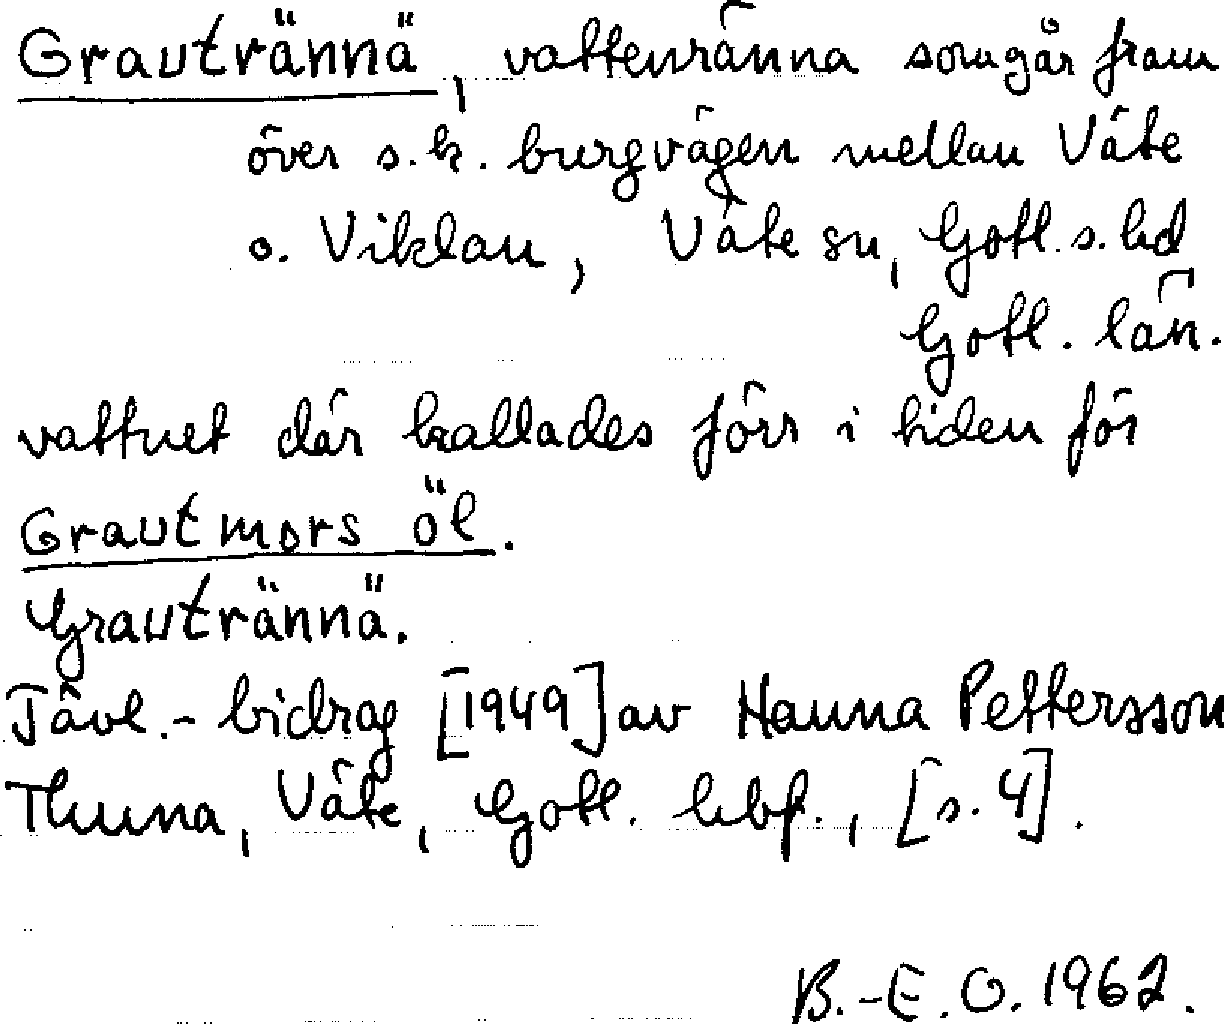 Grautrännä, vattenränna som går fram
över s.k. burgvägen mellan Väte
o. Viklau, Väte sn, Gotl. s. hd
Gotl. län.
vattnet där kallades förr i tiden för
Grautmors öl.
Grautrännä.
Tävl.- bidrag [1949] av Hanna Pettersson
Thuna, Väte, Gotl. hbf., [s. 4].
B.-E. O. 1962.